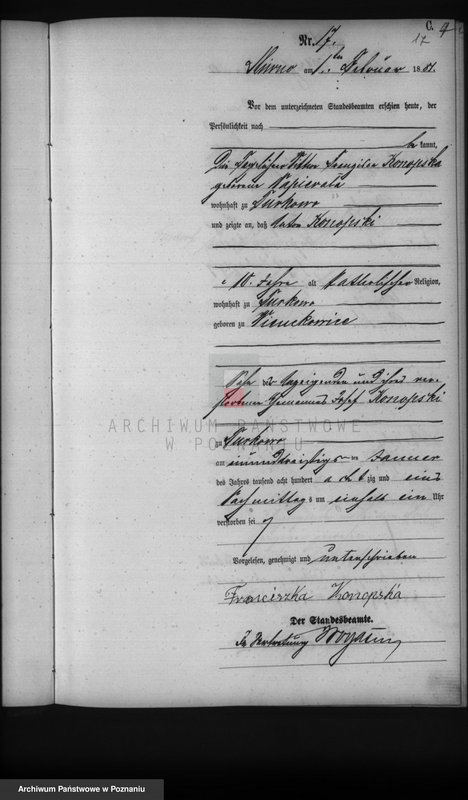 C.
17
Nr. 17.
am 1. ten Februar 1881.
Vor dem unterzeichneten Standesbeamten erschien heute, der
Persönlichkeit nach
be kannt,
Die Konopska
geborene
wohnhaft zu Turkowo
und zeigte an, daß Anton Konopski
10 Jahre alt katholischer Religion,
wohnhaft zu Turkowo
geboren zu
Sohn der Anzeigenden und ihres ver-
storbenen Ehemannes Josef Konopski
ARCHIWUM PAŃSTWOWE
W POZNANIU
zu Turkowo
am einunddreißigsten Januar
des Jahres tausend acht hundert achtzig und eins
Nachmittags um einhalb ein Uhr
verstorben sei
Vorgelesen, genehmigt und unterschrieben
Franciszka Konopska
Der Standesbeamte.
In Vertretung
Archiwum Państwowe w Poznaniu